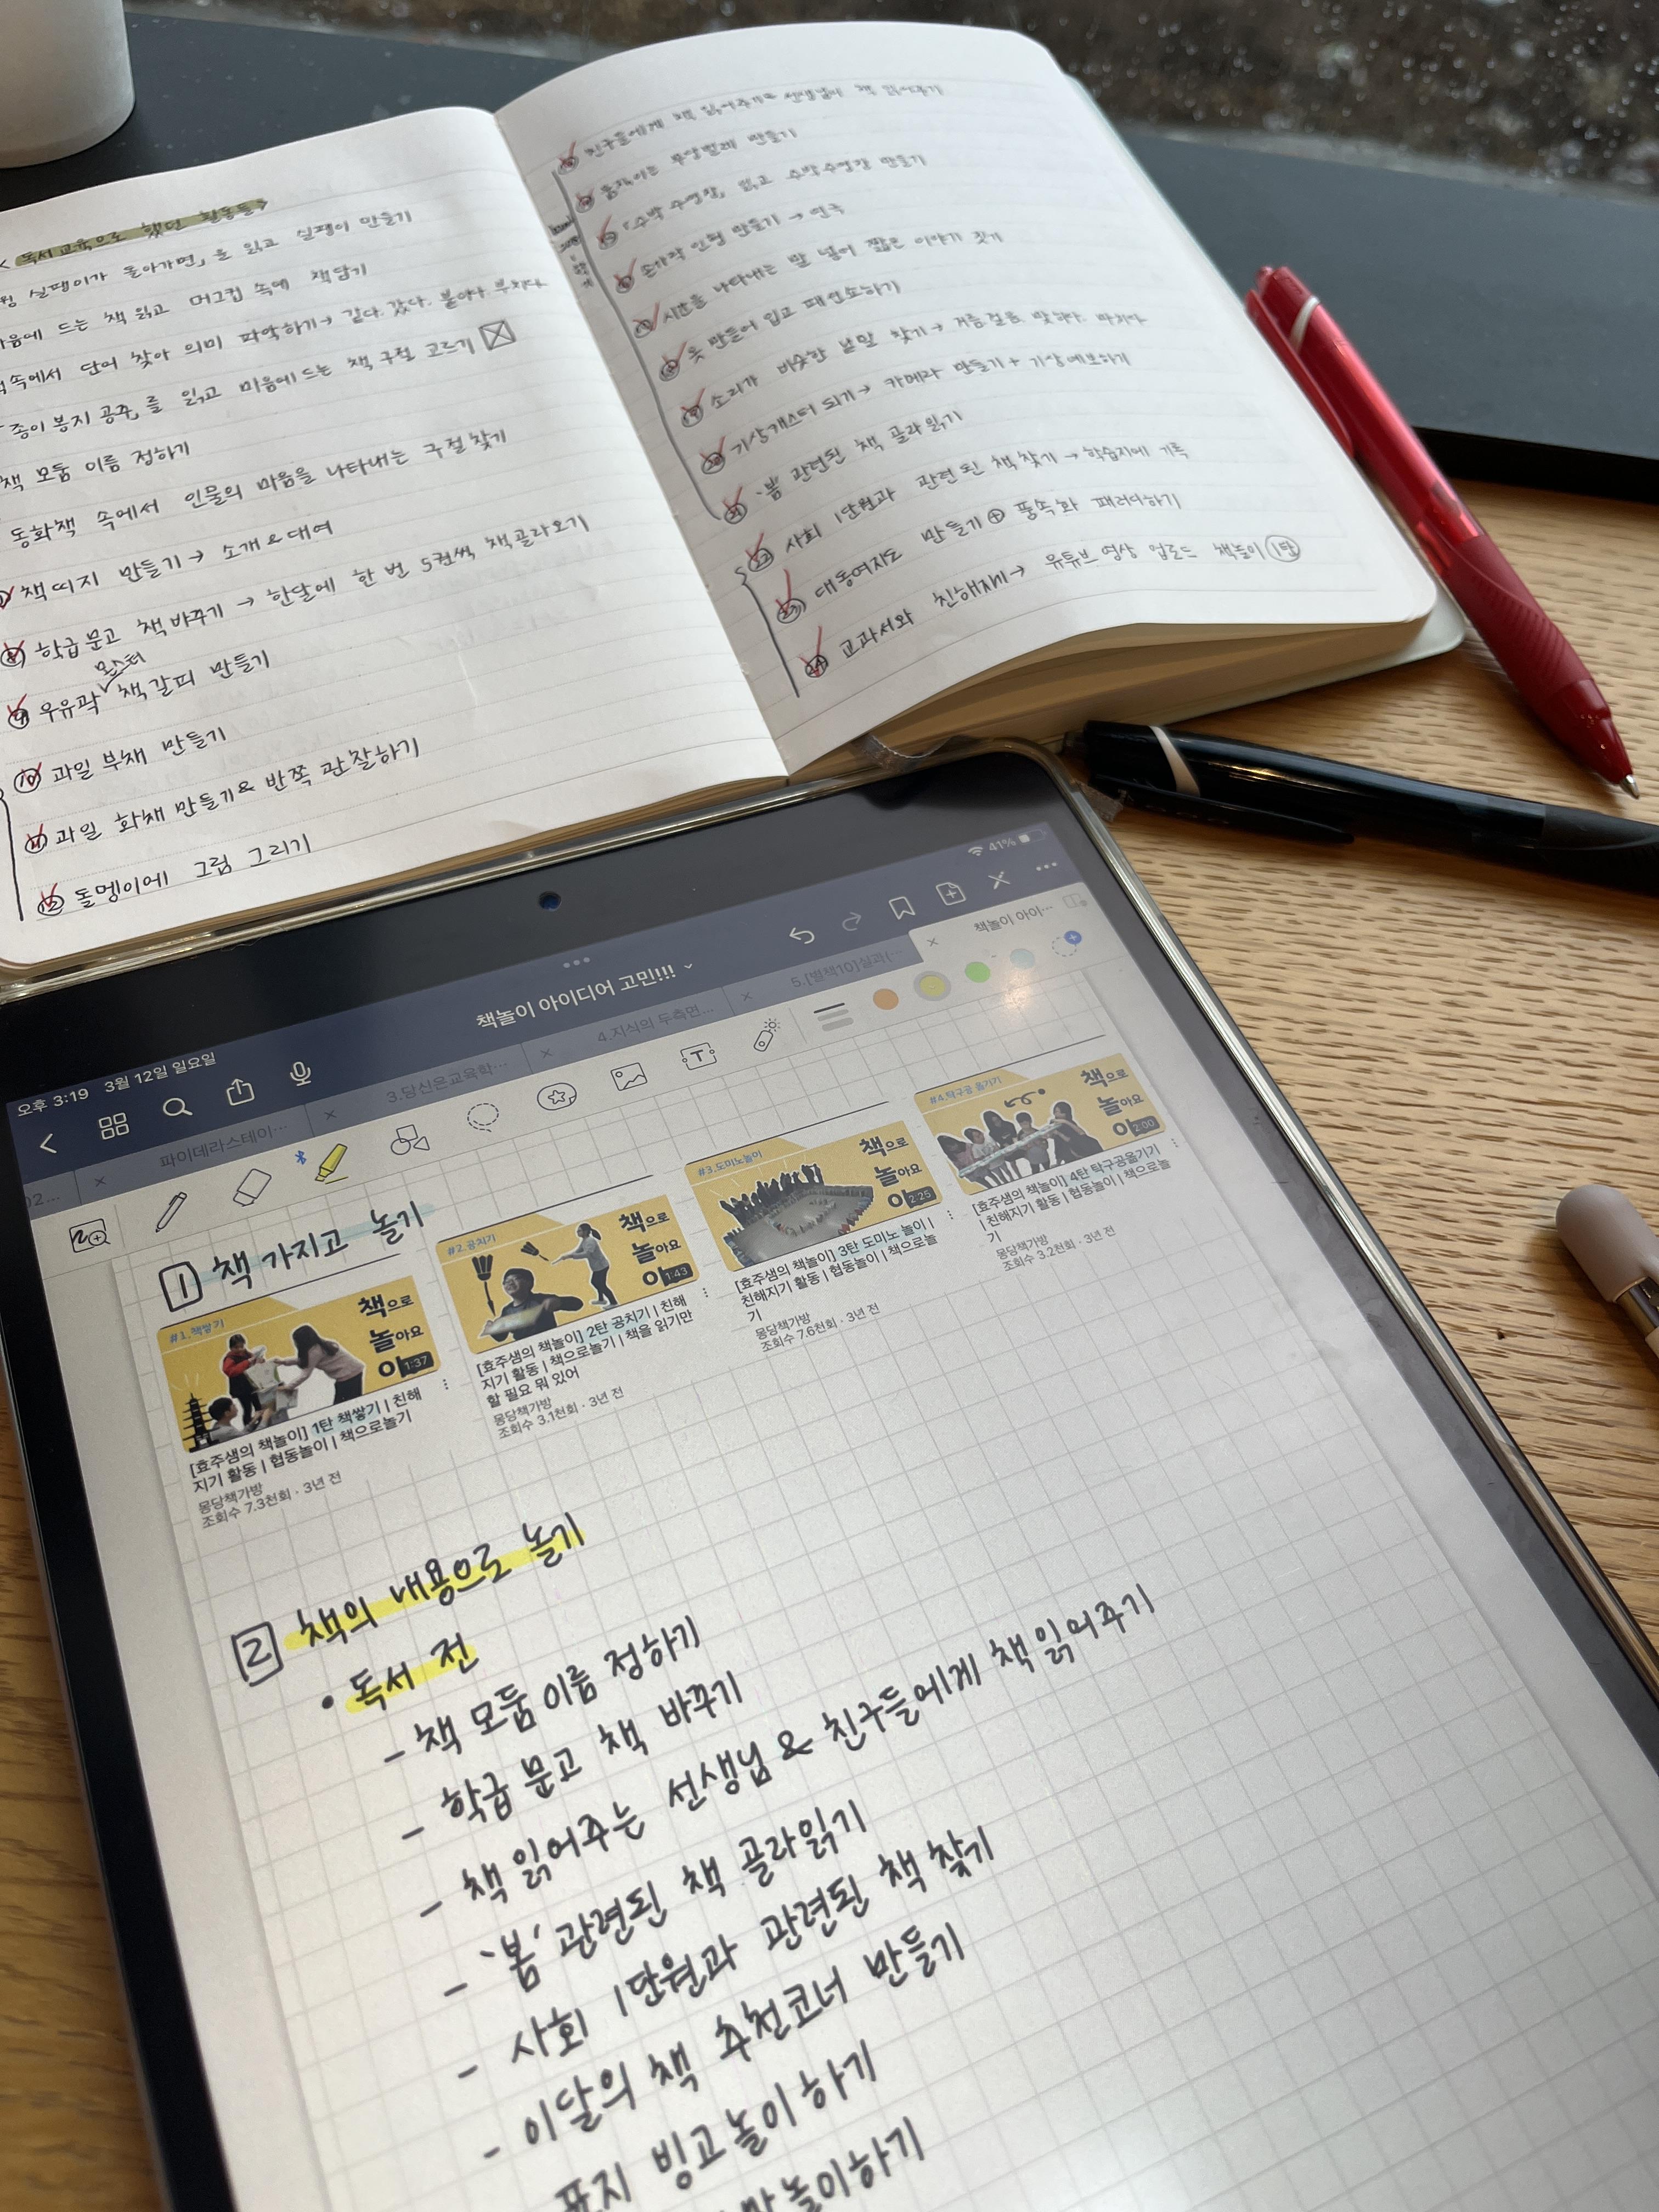 <독서교육으로 했던 활동들>
실팽이가 돌아가면」을 읽고 실팽이 만들기
마음에 드는 책 읽고 머그컵 속에 책 담기
책속에서 단어 찾아 의미 파악하기→ 같다. 갔다. 붙이다. 부치다.
종이 봉지 공주」를 읽고 마음에 드는 책 구절 고르기
책 모둠 이름 정하기
동화책 속에서 인물의 마음을 나타내는 구절 찾기
책 띠지 만들기 → 소개&대여
⑧ 학급문고 책 바꾸기 → 한달에 한 번 5권씩 책 골라오기
몬스터
⑨ 우유곽 책갈피 만들기
⑩ 과일 부채 만들기
⑪ 과일 화채 만들기& 반쪽 관찰하기
⑫ 돌멩이에 그림 그리기
친구들에게 책 읽어주기 선생님이 책 읽어주기
움직이는 무당벌레 만들기
「수박 수영장」 읽고 수박수영장 만들기
손가락 인형 만들기 → 연극
시간을 나타내는 말 넣어 짧은 이야기 짓기
옷 만들어 입고 패션쇼하기
⑲ 소리가 비슷한 낱말 찾기→ 거름.걸음. 맞히다. 마치다
⑳ 기상캐스터 되기→ 카메라 만들기 + 기상예보하기
㉑ '봄' 관련된 책 골라읽기
㉒ 사회 1단원과 관련된 책 찾기 → 학습지에 기록
㉓ 대동여지도 만들기 ⊕ 풍속화 패러디하기
㉔ 교과서와 친해지기→ 유튜브 영상 업로드 책놀이 1탄
오후 3:19 3월 12일 일요일
41%
책놀이 아이디어 고민!!!
02...
파이데라스테이...
3.당신은교육학...
4.지식의 두측면...
5.[별책10]실과(...
책놀이 아이...
1 책 가지고 놀기
#1.책쌓기
책으로
놀아요
1:37
[효주샘의 책놀이] 1탄 책쌓기 | 친해
지기 활동 | 협동놀이 | 책으로놀기
몽당책가방
조회수 7.3천회 · 3년 전
#2.공치기
책으로
놀아요
1:43
[효주샘의 책놀이] 2탄 공치기 | 친해
지기 활동 | 책으로놀기 | 책을 읽기만
할 필요 뭐 있어
몽당책가방
조회수 3.1천회 · 3년 전
#3.도미노놀이
책으로
놀아요
2:25
[효주샘의 책놀이] 3탄 도미노 놀이 |
친해지기 활동 | 협동놀이 | 책으로놀
기
몽당책가방
조회수 7.6천회 · 3년 전
#4.탁구공 옮기기
책으로
놀아요
2:00
[효주샘의 책놀이] 4탄 탁구공옮기기
| 친해지기 활동 | 협동놀이 | 책으로놀
기
몽당책가방
조회수 3.2천회 · 3년 전
2 책의 내용으로 놀기
• 독서 전
- 책 모둠 이름 정하기
- 학급 문고 책 바꾸기
- 책 읽어주는 선생님 & 친구들에게 책 읽어주기
- '봄' 관련된 책 골라읽기
- 사회 1단원과 관련된 책 찾기
- 이달의 책 추천코너 만들기
표지 빙고놀이 하기
놀이하기